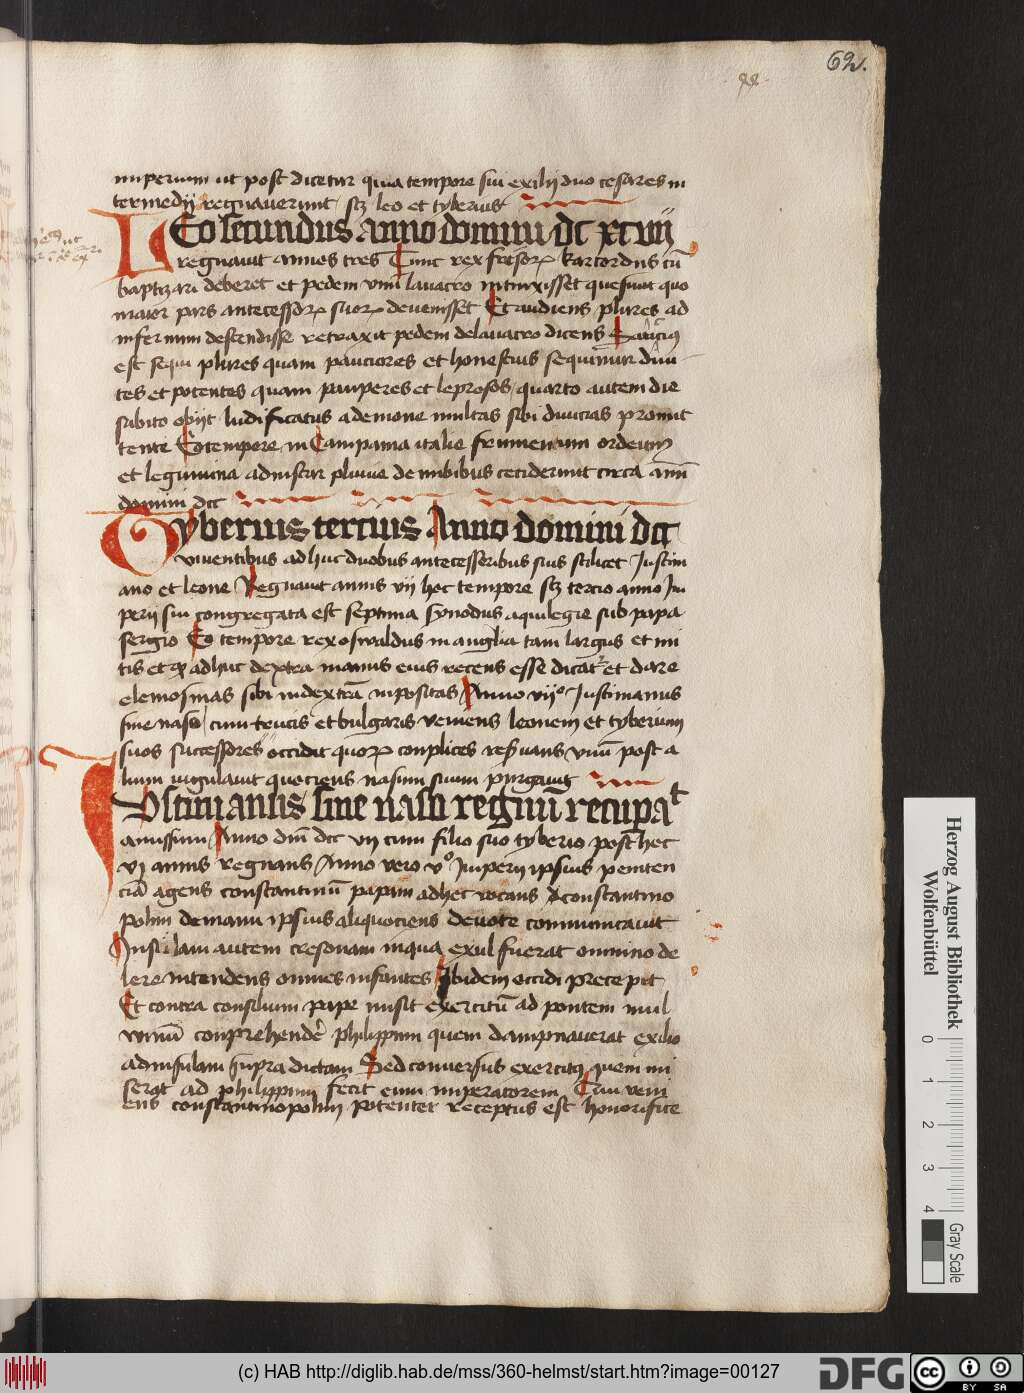 62.
imperium ut post dicetur quia tempore sui exilij duo cesares in
termedij regnauerunt scz leo et tyberius
LEo secundus anno domini dc xcviij
regnauit annos tres Tunc rex frisorꝝ kartordus cū
baptizari deberet et pedem vnū lauacro intinxisset quesiuit quo
maior pars antecessorꝝ suorꝝ deuenisset Et audiens plures ad
infernum descendisse retraxit pedem de lauacro dicens
est sequi plures quam pauciores et honestius sequimur diui
tes et potentes quam pauperes et leprosos quarto autem die
subito obijt ludificatus a demone multas sibi diuicias promit
tente Eo tempore in Campania italie frumentum ordeum
et legumina ad instar pluuie de nubibus ceciderunt circa annū
domini dcc
TYberius tercius Anno domini dcc
viuentibus adhuc duobus antecessoribus suis scilicet Justini
ano et leone Regnauit annis vij hoc tempore scz tercio anno Im
perij sui congregata est septima synodus aquilegie sub papa
sergio Eo tempore rex oswaldus in anglia tam largus et mi
tis et ꝙ adhuc dextra manus eius recens esse dicat̄ et dare
elemosinas sibi in dextrā inpositas Anno vijº Justinianus
sine naso cum teucis et bulgaris veniens leonem et tyberium
suos successores occidit quorꝝ conplices reseruans vnū post a
lium iugulauit quociens nasum suum purgauit
JUstinianus sine naso regnū recupat
amissum Anno dnī dcc vij cum filio suo tyberio post hec
vj annis regnans Anno vero vº Imperij ipsius peniten
ciā agens constantinū papam ad hec vocans a constantino
polim de manu ipsius aliquociens deuote communicauit
Insulam autem cresonam in qua exul fuerat omnino de
lere intendens omnes infantes Ibidem occidi precepit
Et contra consilium pape misit exercitū ad pontem mul
vium conprehendē philippum quem dampnauerat exilio
ad insulam supradictam Sed conuersus exercitus quem mi
serat ad philippum fecit eum imperatorem Cum veni
ens constantinopolim potenter receptus est honorifice
Herzog August Bibliothek
Wolfenbüttel
0 1 2 3 4
Gray Scale
(c) HAB http://diglib.hab.de/mss/360-helmst/start.htm?image=00127
DFG
cc BY SA